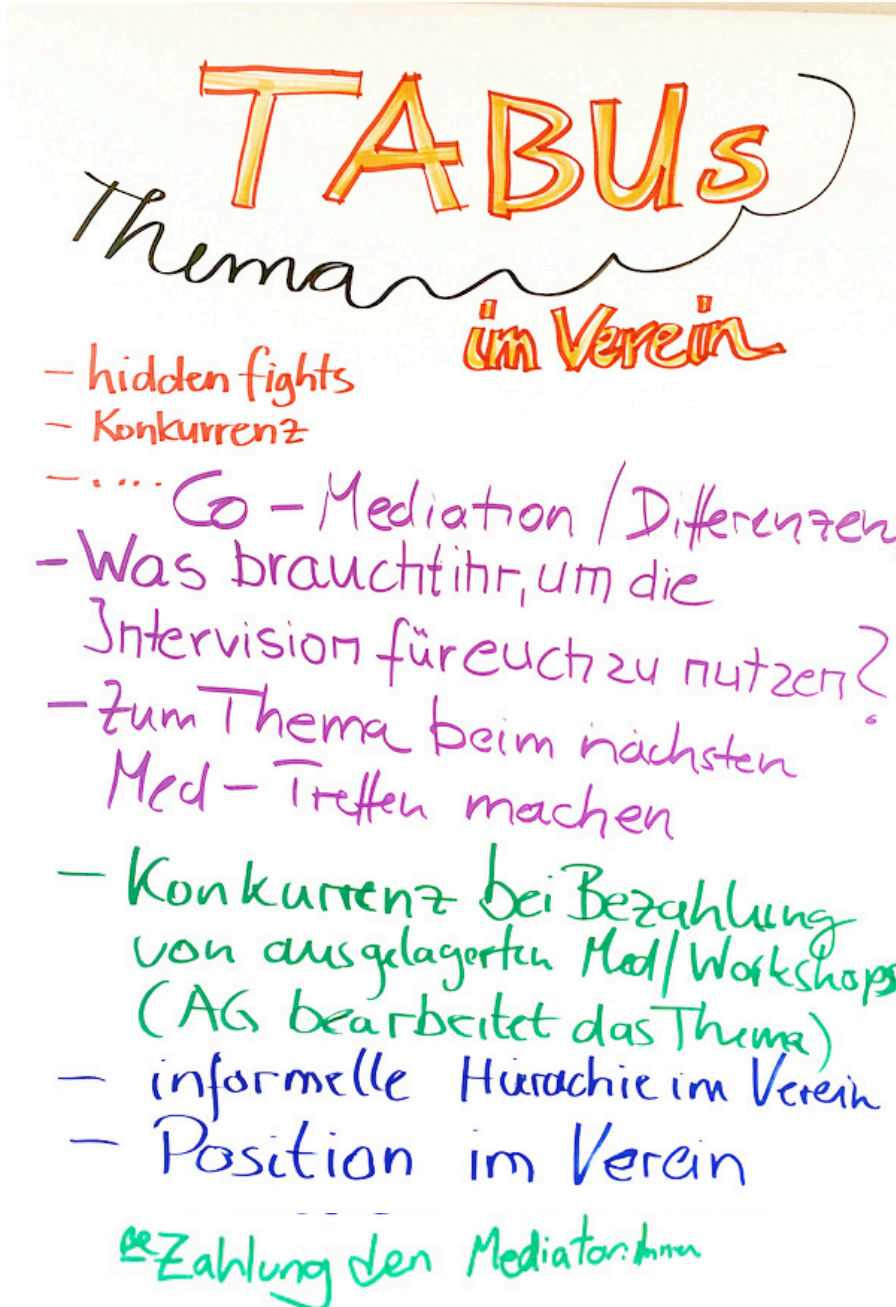 TABUs
Thema
im Verein
- hidden fights
- Konkurrenz
- ....
Co-Mediation / Differenzen
- Was braucht ihr, um die
Intervision für euch zu nutzen?
- Zum Thema beim nächsten
Med-Treffen machen
- Konkurrenz bei Bezahlung
von ausgelagerten Med/Workshops
(AG bearbeitet das Thema)
- informelle Hierachie im Verein
- Position im Verein
BeZahlung den Mediator:innen